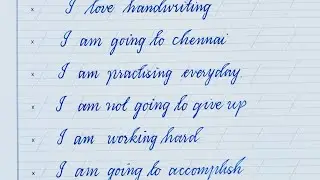 I love handwriting
I am going to chennai
I am practising everyday
I am not going to give up
I am working hard
I am going to accomplish